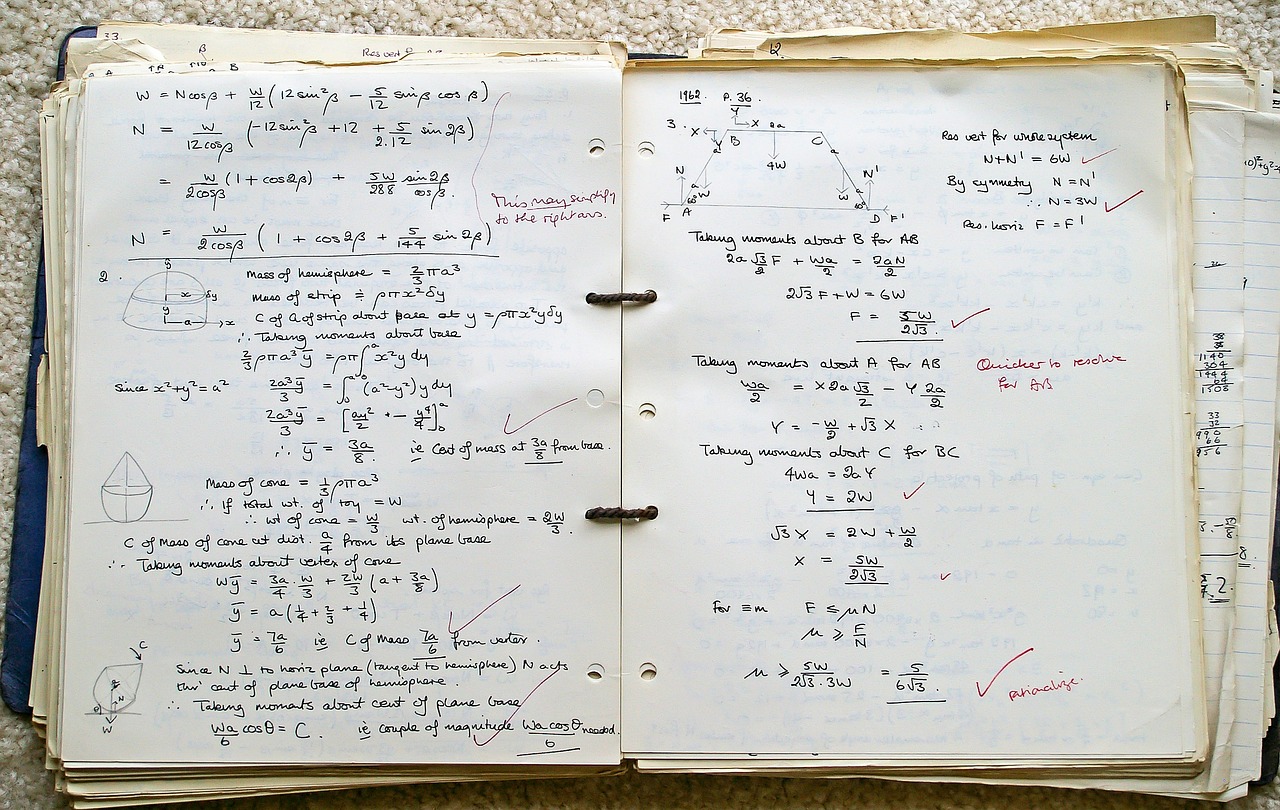 33.
β
Res vert
B
W = Ncosβ + W/12 (12sin²β − 5/12 sinβ cosβ)
N = W/12cosβ (−12sin²β + 12 + 5/2.12 sin2β)
= W/2cosβ (1 + cos2β) + 5W/288 sin2β/cosβ.
This may simplify
to the right ans.
N = W/2cosβ (1 + cos2β + 5/144 sin2β)
2.
y
x
δy
y
a
x
Mass of hemisphere = 2/3 πa³
Mass of strip ≑ ρπx²δy
C of G of strip about base at y = ρπx²yδy
∴ Taking moments about base
2/3 ρπa³ȳ = ρπ∫₀ᵃ x²y dy
Since x²+y²=a² 2a³ȳ/3 = ∫₀ᵃ (a²−y²)y dy
2a³ȳ/3 = [ay²/2 − y⁴/4]₀ᵃ
∴ ȳ = 3a/8 ie Cent of mass at 3a/8 from base.
Mass of cone = 1/3 ρπa³
∴ If total wt. of toy = W
∴ wt of cone = W/3 wt. of hemisphere = 2W/3.
C of Mass of cone at dist. a/4 from its plane base
∴ Taking moments about vertex of cone
Wȳ = 3a/4 . W/3 + 2W/3 (a + 3a/8)
ȳ = a(1/4 + 2/3 + 1/4)
ȳ = 7a/6 ie C of Mass 7a/6 from vertex.
C
N
θ
W
Since N ⊥ to horiz plane (tangent to hemisphere) N acts
thro' cent of plane base of hemisphere.
∴ Taking moments about cent of plane base
Wa/6 cosθ = C. ie couple of magnitude Wa cosθ/6 needed.
12.
1962. P. 36.
3.
Y
X
X
2a
B
C
Y
a
a
4W
N
N'
a
W
W
a
60°
60°
F
A
D
F'
Res vert for whole system
N+N' = 6W
By symmetry N = N'
∴ N = 3W
Res. horiz F = F'
Taking moments about B for AB
2a √3/2 F + Wa/2 = 2aN/2
2√3 F + W = 6W
F = 5W/2√3.
Taking moments about A for AB
Quicker to resolve
for AB
Wa/2 = X2a √3/2 − Y 2a/2
Y = −W/2 + √3 X
Taking moments about C for BC
4Wa = 2aY
Y = 2W
√3 X = 2W + W/2
X = 5W/2√3
For ≡m F ≤ μN
μ ≥ F/N
μ ≥ 5W/2√3.3W = 5/6√3.
rationalize.
38
38
1140
304
1444
64
1508
33
32
990
66
956
8.
2.